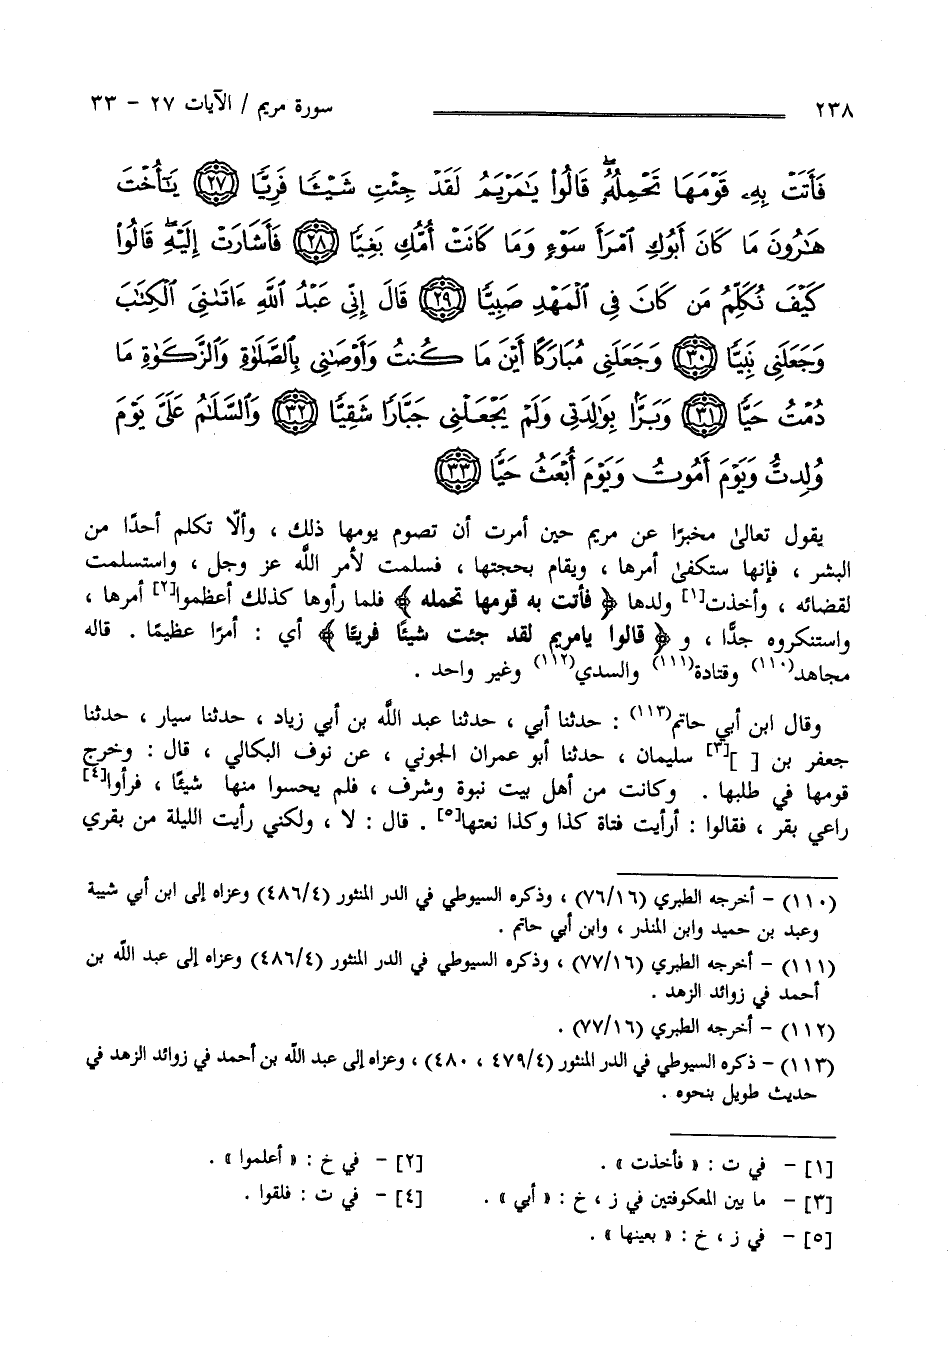 ٢٣٨ سورة مريم / الآيات ٢٧ - ٣٣
فَأَتَتْ بِهِۦ قَوْمَهَا تَحْمِلُهُۥۖ قَالُوا۟ يَـٰمَرْيَمُ لَقَدْ جِئْتِ شَيْـًٔا فَرِيًّا ﴿٢٧﴾ يَـٰٓأُخْتَ
هَـٰرُونَ مَا كَانَ أَبُوكِ ٱمْرَأَ سَوْءٍ وَمَا كَانَتْ أُمُّكِ بَغِيًّا ﴿٢٨﴾ فَأَشَارَتْ إِلَيْهِۖ قَالُوا۟
كَيْفَ نُكَلِّمُ مَن كَانَ فِى ٱلْمَهْدِ صَبِيًّا ﴿٢٩﴾ قَالَ إِنِّى عَبْدُ ٱللَّهِ ءَاتَىٰنِىَ ٱلْكِتَـٰبَ
وَجَعَلَنِى نَبِيًّا ﴿٣٠﴾ وَجَعَلَنِى مُبَارَكًا أَيْنَ مَا كُنتُ وَأَوْصَـٰنِى بِٱلصَّلَوٰةِ وَٱلزَّكَوٰةِ مَا
دُمْتُ حَيًّا ﴿٣١﴾ وَبَرًّۢا بِوَٰلِدَتِى وَلَمْ يَجْعَلْنِى جَبَّارًا شَقِيًّا ﴿٣٢﴾ وَٱلسَّلَـٰمُ عَلَىَّ يَوْمَ
وُلِدتُّ وَيَوْمَ أَمُوتُ وَيَوْمَ أُبْعَثُ حَيًّا ﴿٣٣﴾
يقول تعالىٰ مخبرًا عن مريم حين أمرت أن تصوم يومها ذلك ، وألّا تكلم أحدًا من
البشر ، فإنها ستكفىٰ أمرها ، ويقام بحجتها ، فسلمت لأمر اللَّه عز وجل ، واستسلمت
لقضائه ، وأخذت[١] ولدها ﴿ فأتت به قومها تحمله ﴾ فلما رأوها كذلك أعظموا[٢] أمرها ،
واستنكروه جدًّا ، و ﴿ قالوا يامريم لقد جئت شيئًا فريًّا ﴾ أي : أمرًا عظيمًا . قاله
مجاهد(١١٠) وقتادة(١١١) والسدي(١١٢) وغير واحد .
وقال ابن أبي حاتم(١١٣) : حدثنا أبي ، حدثنا عبد اللَّه بن أبي زياد ، حدثنا سيار ، حدثنا
جعفر بن [ ][٣] سليمان ، حدثنا أبو عمران الجوني ، عن نوف البكالي ، قال : وخرج
قومها في طلبها . وكانت من أهل بيت نبوة وشرف ، فلم يحسوا منها شيئًا ، فرأوا[٤]
راعي بقر ، فقالوا : أرأيت فتاة كذا وكذا نعتها[٥] . قال : لا ، ولكني رأيت الليلة من بقري
(١١٠) - أخرجه الطبري (٧٦/١٦) ، وذكره السيوطي في الدر المنثور (٤٨٦/٤) وعزاه إلى ابن أبي شيبة
وعبد بن حميد وابن المنذر ، وابن أبي حاتم .
(١١١) - أخرجه الطبري (٧٧/١٦) ، وذكره السيوطي في الدر المنثور (٤٨٦/٤) وعزاه إلى عبد اللَّه بن
أحمد في زوائد الزهد .
(١١٢) - أخرجه الطبري (٧٧/١٦) .
(١١٣) - ذكره السيوطي في الدر المنثور (٤٧٩/٤ ، ٤٨٠) ، وعزاه إلى عبد اللَّه بن أحمد في زوائد الزهد في
حديث طويل بنحوه .
[١] - في ت : « فأخذت » . [٢] - في خ : « أعلموا » .
[٣] - ما بين المعكوفتين في ز ، خ : « أبي » . [٤] - في ت : فلقوا .
[٥] - في ز ، خ : « بعينها » .